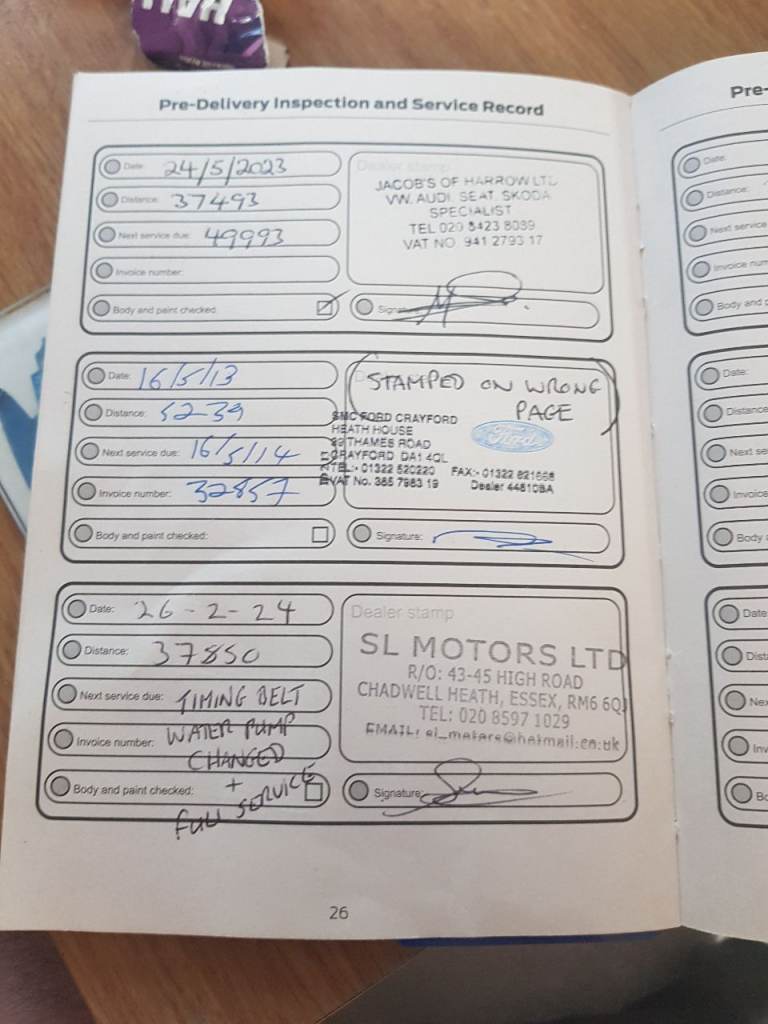 HALL
Pre-Delivery Inspection and Service Record
Date: 24/5/2023
Distance: 37493
Next service due: 49993
Invoice number:
Body and paint checked:
Dealer stamp
JACOB'S OF HARROW LTD
VW. AUDI. SEAT. SKODA
SPECIALIST
TEL 020 8423 8039
VAT NO. 941 2793 17
Signature:
Date: 16/5/13
Distance: 5239
Next service due: 16/5/14
Invoice number: 32857
Body and paint checked:
(STAMPED ON WRONG
PAGE)
SMC FORD CRAYFORD
HEATH HOUSE
THAMES ROAD
CRAYFORD DA1 4QL
TEL:- 01322 520220 FAX:- 01322 521668
VAT No. 365 7983 19 Dealer 44810BA
Ford
Signature:
Date: 26-2-24
Distance: 37850
Next service due: TIMING BELT
Invoice number: WATER PUMP
CHANGED
+
Body and paint checked:
FULL SERVICE
Dealer stamp
SL MOTORS LTD
R/O: 43-45 HIGH ROAD
CHADWELL HEATH, ESSEX, RM6 6QJ
TEL: 020 8597 1029
EMAIL: sl_motors@hotmail.co.uk
Signature:
26
Pre-
Date:
Distance:
Next service
Invoice num
Body and p
Date:
Distance
Next se
Invoice
Body a
Date
Dist
Nex
Inv
Bo